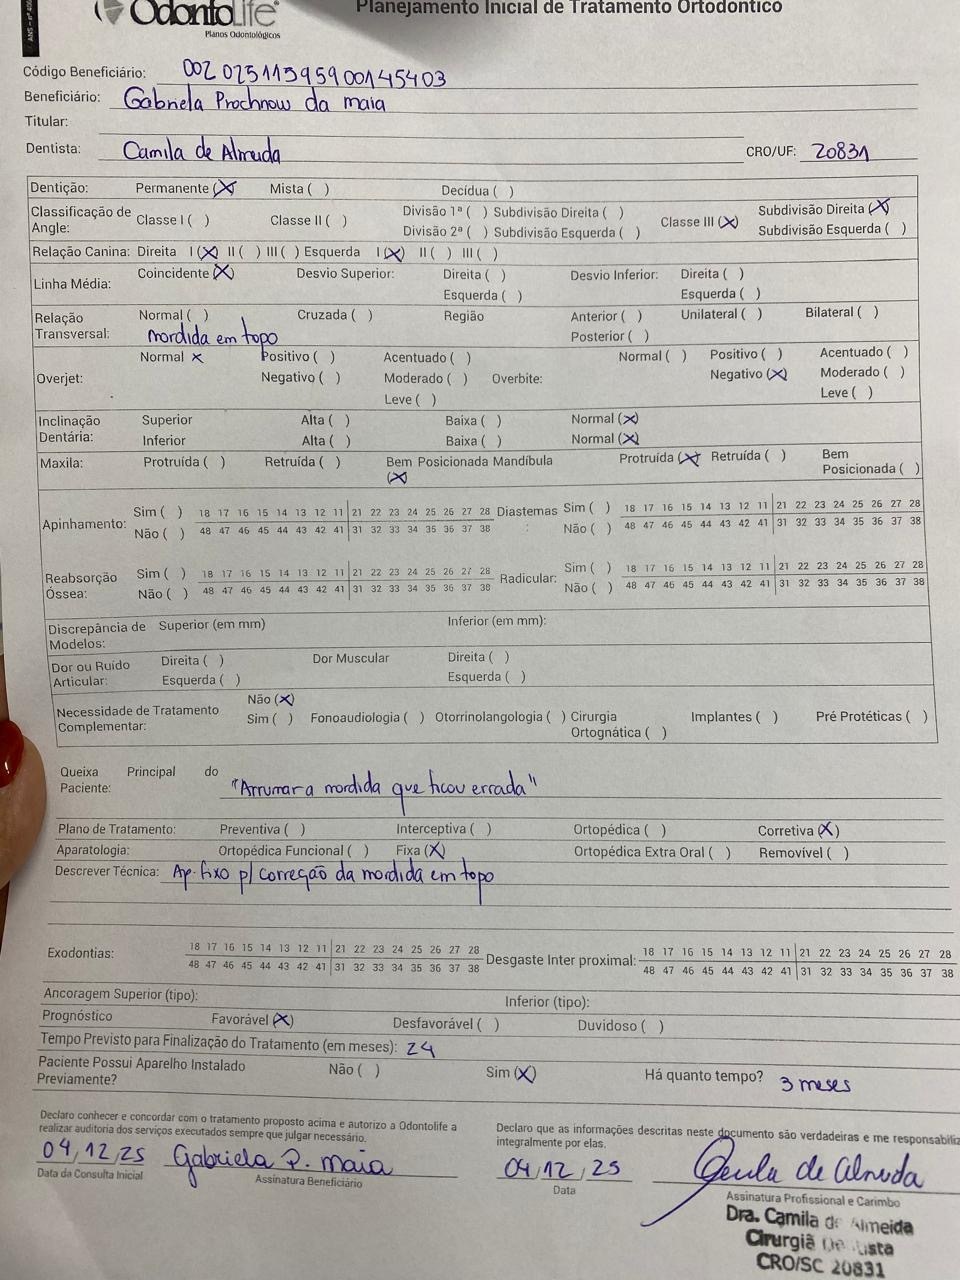 ANS - nº 406
OdontoLife®
Planos Odontológicos
Planejamento Inicial de Tratamento Ortodôntico
Código Beneficiário: 002 02511395900145403
Beneficiário: Gabriela Prochnow da maia
Titular:
Dentista: Camila de Almeida CRO/UF: 20831
Dentição: Permanente (X) Mista ( ) Decídua ( )
Classificação de Angle: Classe I ( ) Classe II ( ) Divisão 1ª ( ) Subdivisão Direita ( ) Classe III (X) Subdivisão Direita (X)
Divisão 2ª ( ) Subdivisão Esquerda ( ) Subdivisão Esquerda ( )
Relação Canina: Direita I (X) II ( ) III ( ) Esquerda I (X) II ( ) III ( )
Linha Média: Coincidente (X) Desvio Superior: Direita ( ) Desvio Inferior: Direita ( )
Esquerda ( ) Esquerda ( )
Relação Transversal: Normal ( ) Cruzada ( ) Região Anterior ( ) Unilateral ( ) Bilateral ( )
mordida em topo Posterior ( )
Overjet: Normal x Positivo ( ) Acentuado ( ) Overbite: Normal ( ) Positivo ( ) Acentuado ( )
Negativo ( ) Moderado ( ) Negativo (X) Moderado ( )
Leve ( ) Leve ( )
Inclinação Dentária: Superior Alta ( ) Baixa ( ) Normal (X)
Inferior Alta ( ) Baixa ( ) Normal (X)
Maxila: Protruída ( ) Retruída ( ) Bem Posicionada (X) Mandíbula Protruída (X) Retruída ( ) Bem Posicionada ( )
Apinhamento: Sim ( ) 18 17 16 15 14 13 12 11 21 22 23 24 25 26 27 28 Diastemas : Sim ( ) 18 17 16 15 14 13 12 11 21 22 23 24 25 26 27 28
Não ( ) 48 47 46 45 44 43 42 41 31 32 33 34 35 36 37 38 Não ( ) 48 47 46 45 44 43 42 41 31 32 33 34 35 36 37 38
Reabsorção Óssea: Sim ( ) 18 17 16 15 14 13 12 11 21 22 23 24 25 26 27 28 Radicular: Sim ( ) 18 17 16 15 14 13 12 11 21 22 23 24 25 26 27 28
Não ( ) 48 47 46 45 44 43 42 41 31 32 33 34 35 36 37 38 Não ( ) 48 47 46 45 44 43 42 41 31 32 33 34 35 36 37 38
Discrepância de Modelos: Superior (em mm) Inferior (em mm):
Dor ou Ruído Articular: Direita ( ) Dor Muscular Direita ( )
Esquerda ( ) Esquerda ( )
Necessidade de Tratamento Complementar: Não (X)
Sim ( ) Fonoaudiologia ( ) Otorrinolangologia ( ) Cirurgia Ortognática ( ) Implantes ( ) Pré Protéticas ( )
Queixa Principal do Paciente: "Arrumar a mordida que ficou errada"
Plano de Tratamento: Preventiva ( ) Interceptiva ( ) Ortopédica ( ) Corretiva (X)
Aparatologia: Ortopédica Funcional ( ) Fixa (X) Ortopédica Extra Oral ( ) Removível ( )
Descrever Técnica: Ap. fixo p/ correção da mordida em topo
Exodontias: 18 17 16 15 14 13 12 11 21 22 23 24 25 26 27 28 Desgaste Inter proximal: 18 17 16 15 14 13 12 11 21 22 23 24 25 26 27 28
48 47 46 45 44 43 42 41 31 32 33 34 35 36 37 38 48 47 46 45 44 43 42 41 31 32 33 34 35 36 37 38
Ancoragem Superior (tipo): Inferior (tipo):
Prognóstico Favorável (X) Desfavorável ( ) Duvidoso ( )
Tempo Previsto para Finalização do Tratamento (em meses): 24
Paciente Possui Aparelho Instalado Previamente? Não ( ) Sim (X) Há quanto tempo? 3 meses
Declaro conhecer e concordar com o tratamento proposto acima e autorizo a Odontolife a
realizar auditoria dos serviços executados sempre que julgar necessário.
Declaro que as informações descritas neste documento são verdadeiras e me responsabiliz
integralmente por elas.
04/12/25 Gabriela P. Maia 04/12/25 Camila de Almeida
Data da Consulta Inicial Assinatura Beneficiário Data Assinatura Profissional e Carimbo
Dra. Camila de Almeida
Cirurgiã Dentista
CRO/SC 20831